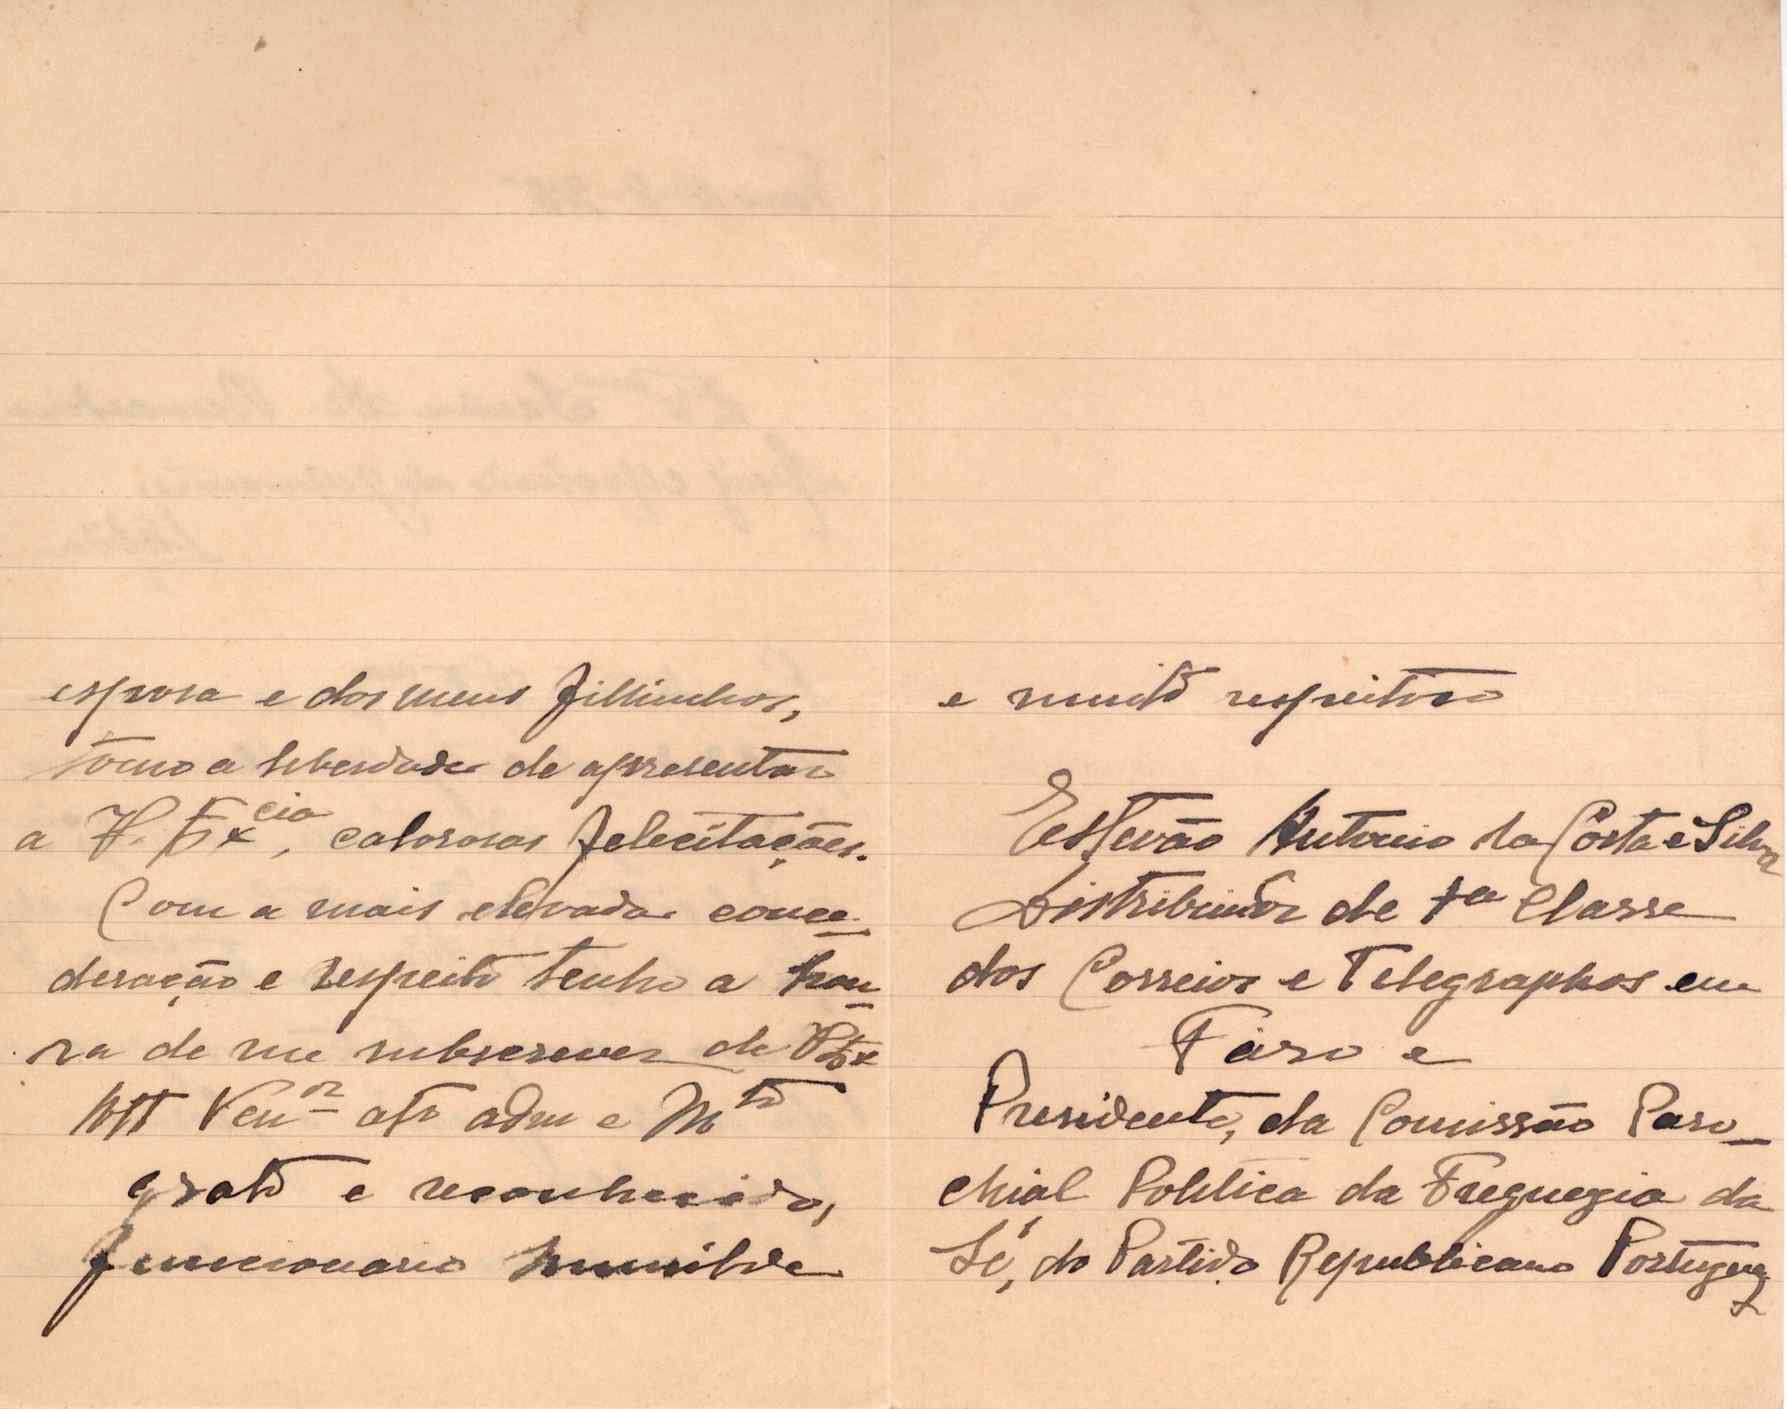 esposa e dos meus fillinhos,
tômo a liberdade de apresentar
a V. Excia, calorosas felecitações.
Com a mais elevada conce-
deração e respeito tenho a hon-
ra de me subscrever de V. Ex
Att Ven.or atto adm e Mto
grato e reconhecido,
funccionario humilde
e muito respeitoso
Estevão Antonio da Costa e Silva
Distribuidor de 1a Classe
dos Correios e Telegraphos em
Faro e
Presidente, da Comissão Paro-
chial Politica da Freguezia da
Sé, do Partido Republicano Portuguez